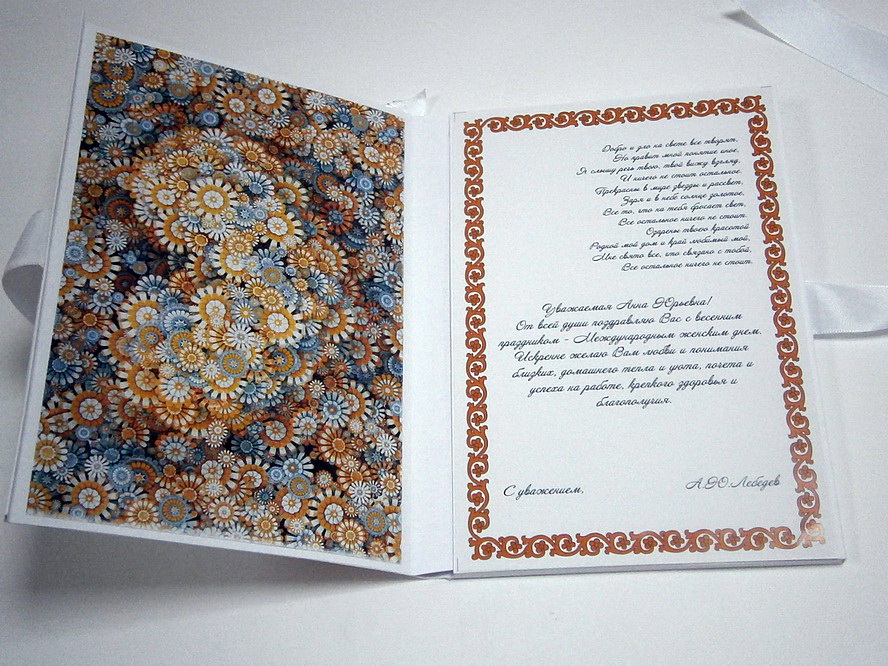 Добро и зло на свете все творят,
Но правит мной понятие иное,
Я слышу речь твою, твой вижу взгляд,
И ничего не стоит остальное.
Прекрасны в мире звезды и рассвет,
Заря и в небе солнце золотое,
Все то, что на тебя бросает свет,
Все остальное ничего не стоит.
Озарены твоею красотой
Родной мой дом и край любимый мой,
Мне свято все, что связано с тобой,
Все остальное ничего не стоит.
Уважаемая Анна Юрьевна!
От всей души поздравляю Вас с весенним
праздником - Международным женским днем.
Искренне желаю Вам любви и понимания
близких, домашнего тепла и уюта, почета и
успеха на работе, крепкого здоровья и
благополучия.
С уважением,
А.Ю.Лебедев